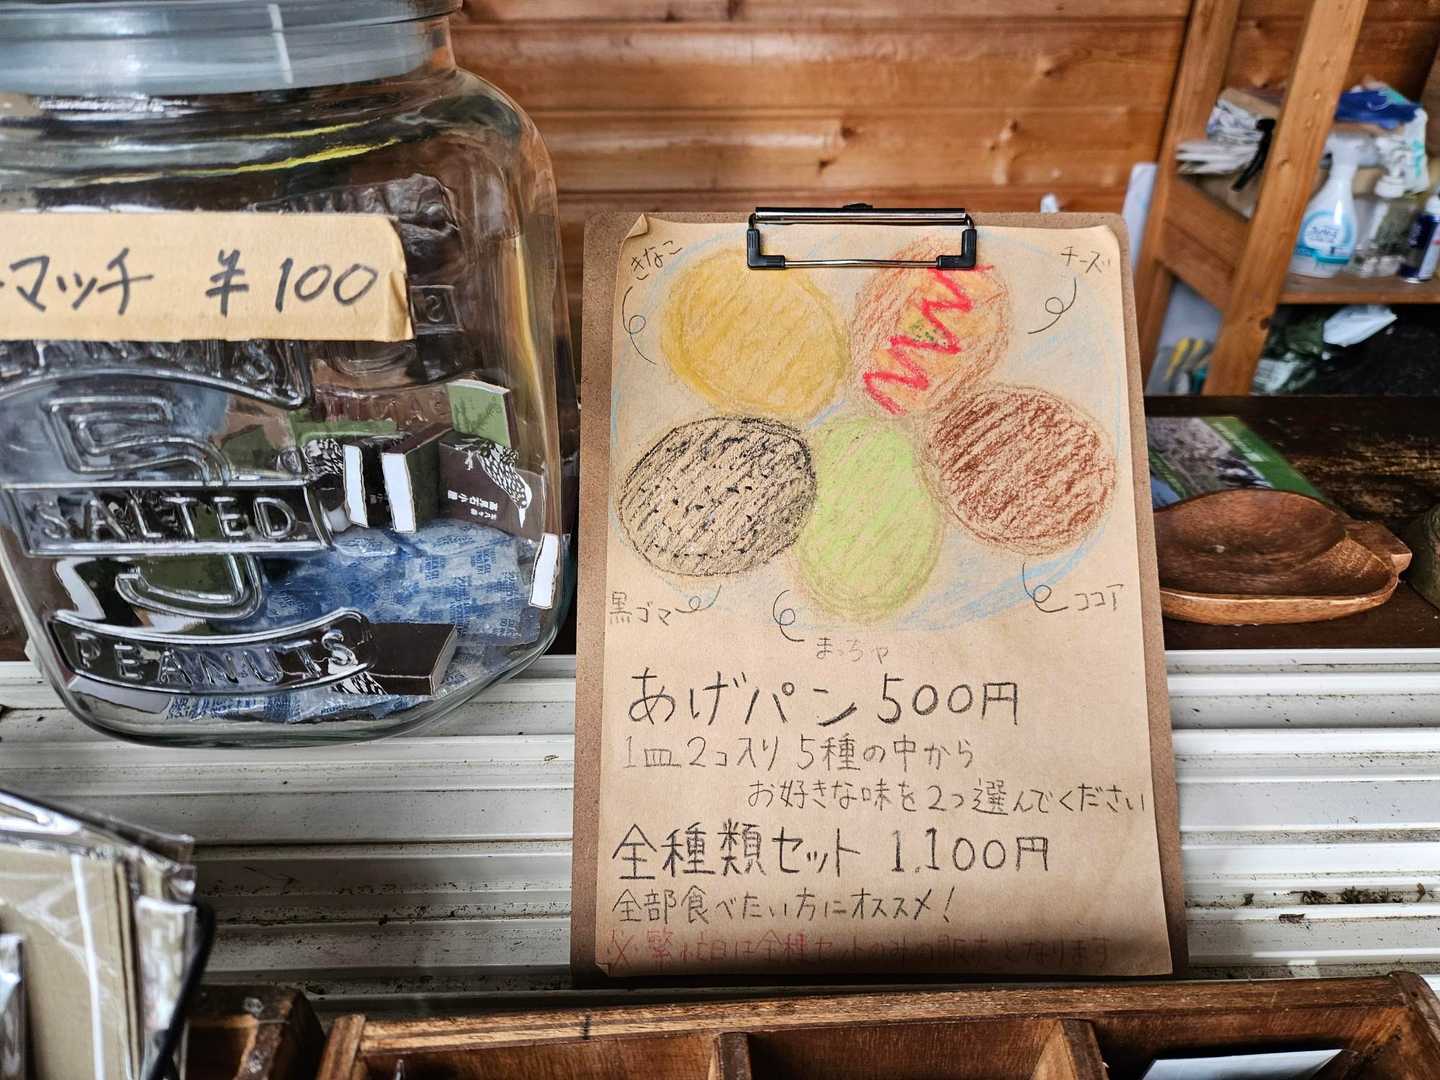 マッチ ¥100
5
SALTED
J
PEANUTS
高見石小屋
きなこ
チーズ
黒ゴマ
まっちゃ
ココア
あげパン 500円
1皿2コ入り 5種の中から
お好きな味を2つ選んでください
全種類セット 1,100円
全部食べたい方にオススメ!
※繁忙日は全種セットのみの販売となります